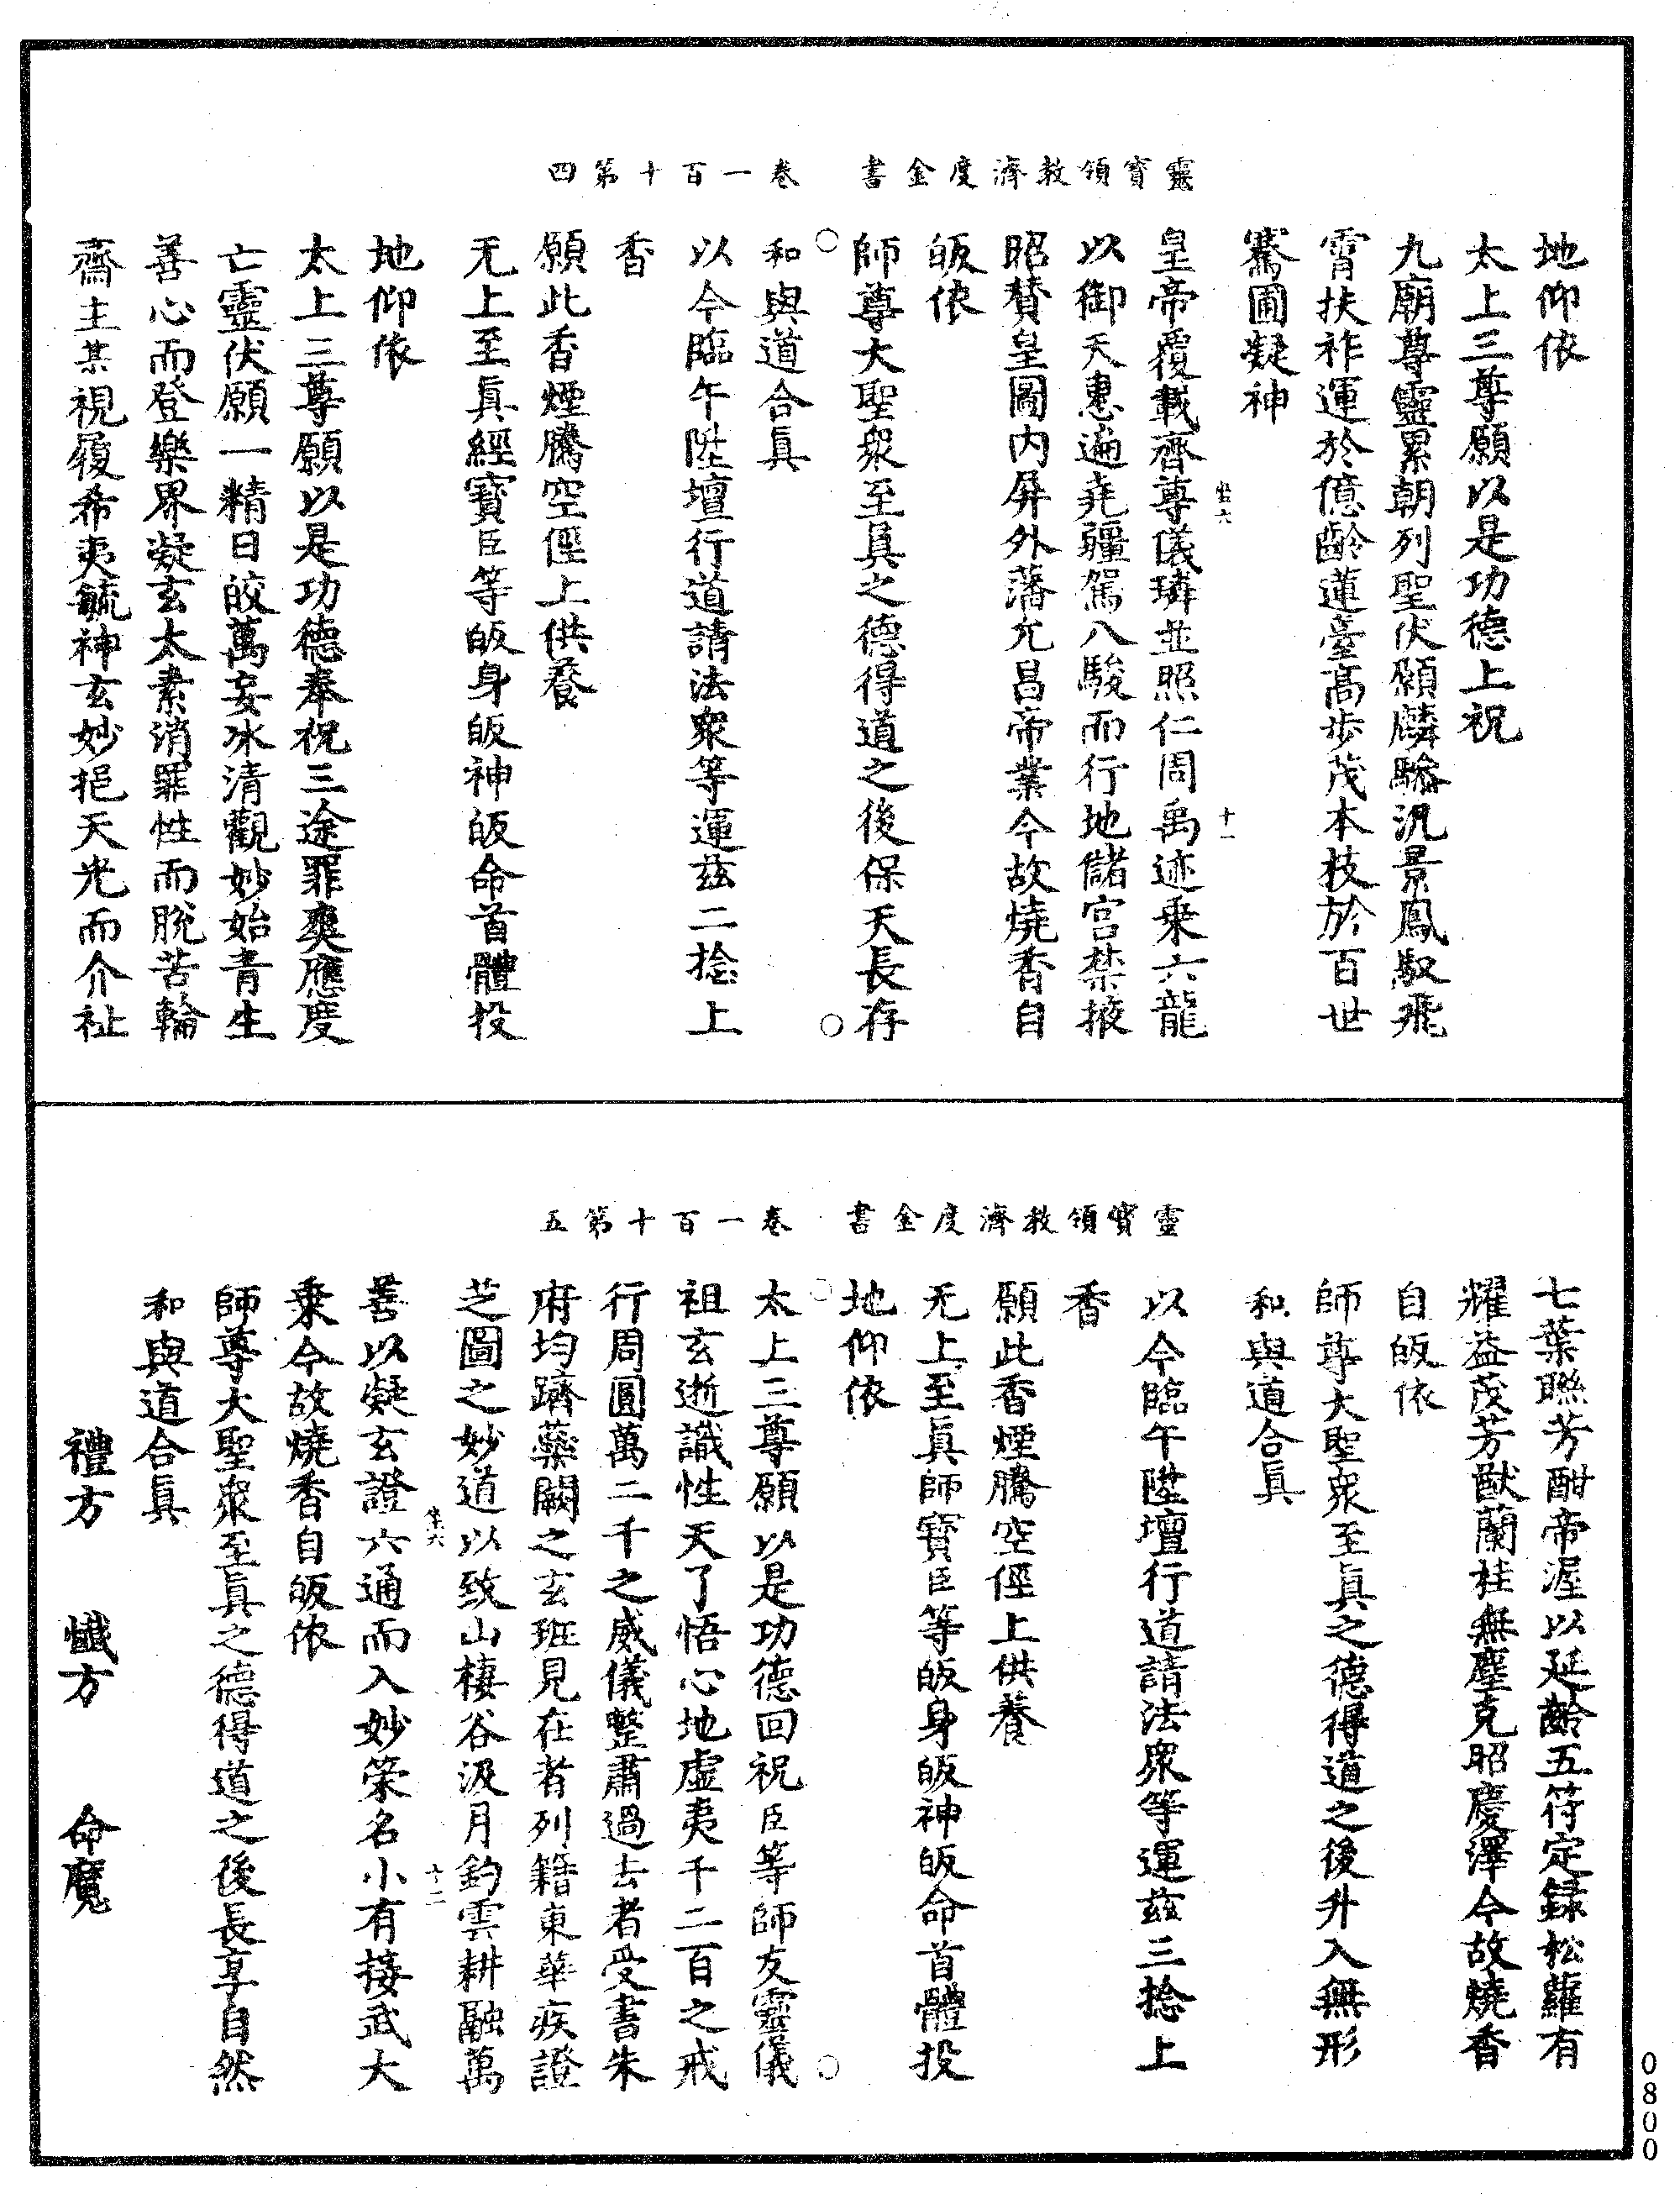 靈寶領教濟度金書　卷一百十第四
地仰依
太上三尊願以是功德上祝
九廟尊靈累朝列聖伏願麟驂汎景鳳馭飛
霄扶祚運於億齡蓮臺高步茂本枝於百世
騫圃凝神
皇帝覆載齊尊儀璘並照仁周禹迹乗六龍
以御天惠遍尭疆駕八駿而行地儲宮禁掖
昭賛皇圖内屏外藩允昌帝業今故燒香自
皈依
師尊大聖衆至真之德得道之後保天長存
和與道合真
以今臨午陞壇行道請法衆等運兹二捻上
香
願此香煙騰空徑上供養
无上至真經寳臣等皈身皈神皈命首體投
地仰依
太上三尊願以是功德奉祝三途罪爽應度
亡靈伏願一精日皎萬妄冰清觀妙始青生
善心而登樂界凝玄太素消罪性而脱苦輪
齋主某視履希夷毓神玄妙挹天光而介祉
十一
靈寶領教濟度金書　卷一百十第五
七葉聯芳酣帝渥以延齡五符定録松蘿有
耀益茂芳猷蘭桂無塵克昭慶澤今故燒香
自皈依
師尊大聖衆至真之德得道之後升入無形
和與道合真
以今臨午陞壇行道請法衆等運兹三捻上
香
願此香煙騰空徑上供養
无上至真師寳臣等皈身皈神皈命首體投
地仰依
太上三尊願以是功德回祝臣等師友靈儀
祖玄逝識性天了悟心地虛夷千二百之戒
行周圓萬二千之威儀整肅過去者受書朱
府均躋蘂闕之玄班見在者列籍東華疾證
芝圖之妙道以致山棲谷汲月釣雲耕融萬
善以凝玄證六通而入妙榮名小有接武大
乗今故燒香自皈依
師尊大聖衆至真之德得道之後長享自然
和與道合真
禮方　懺方　命魔
十二
0800